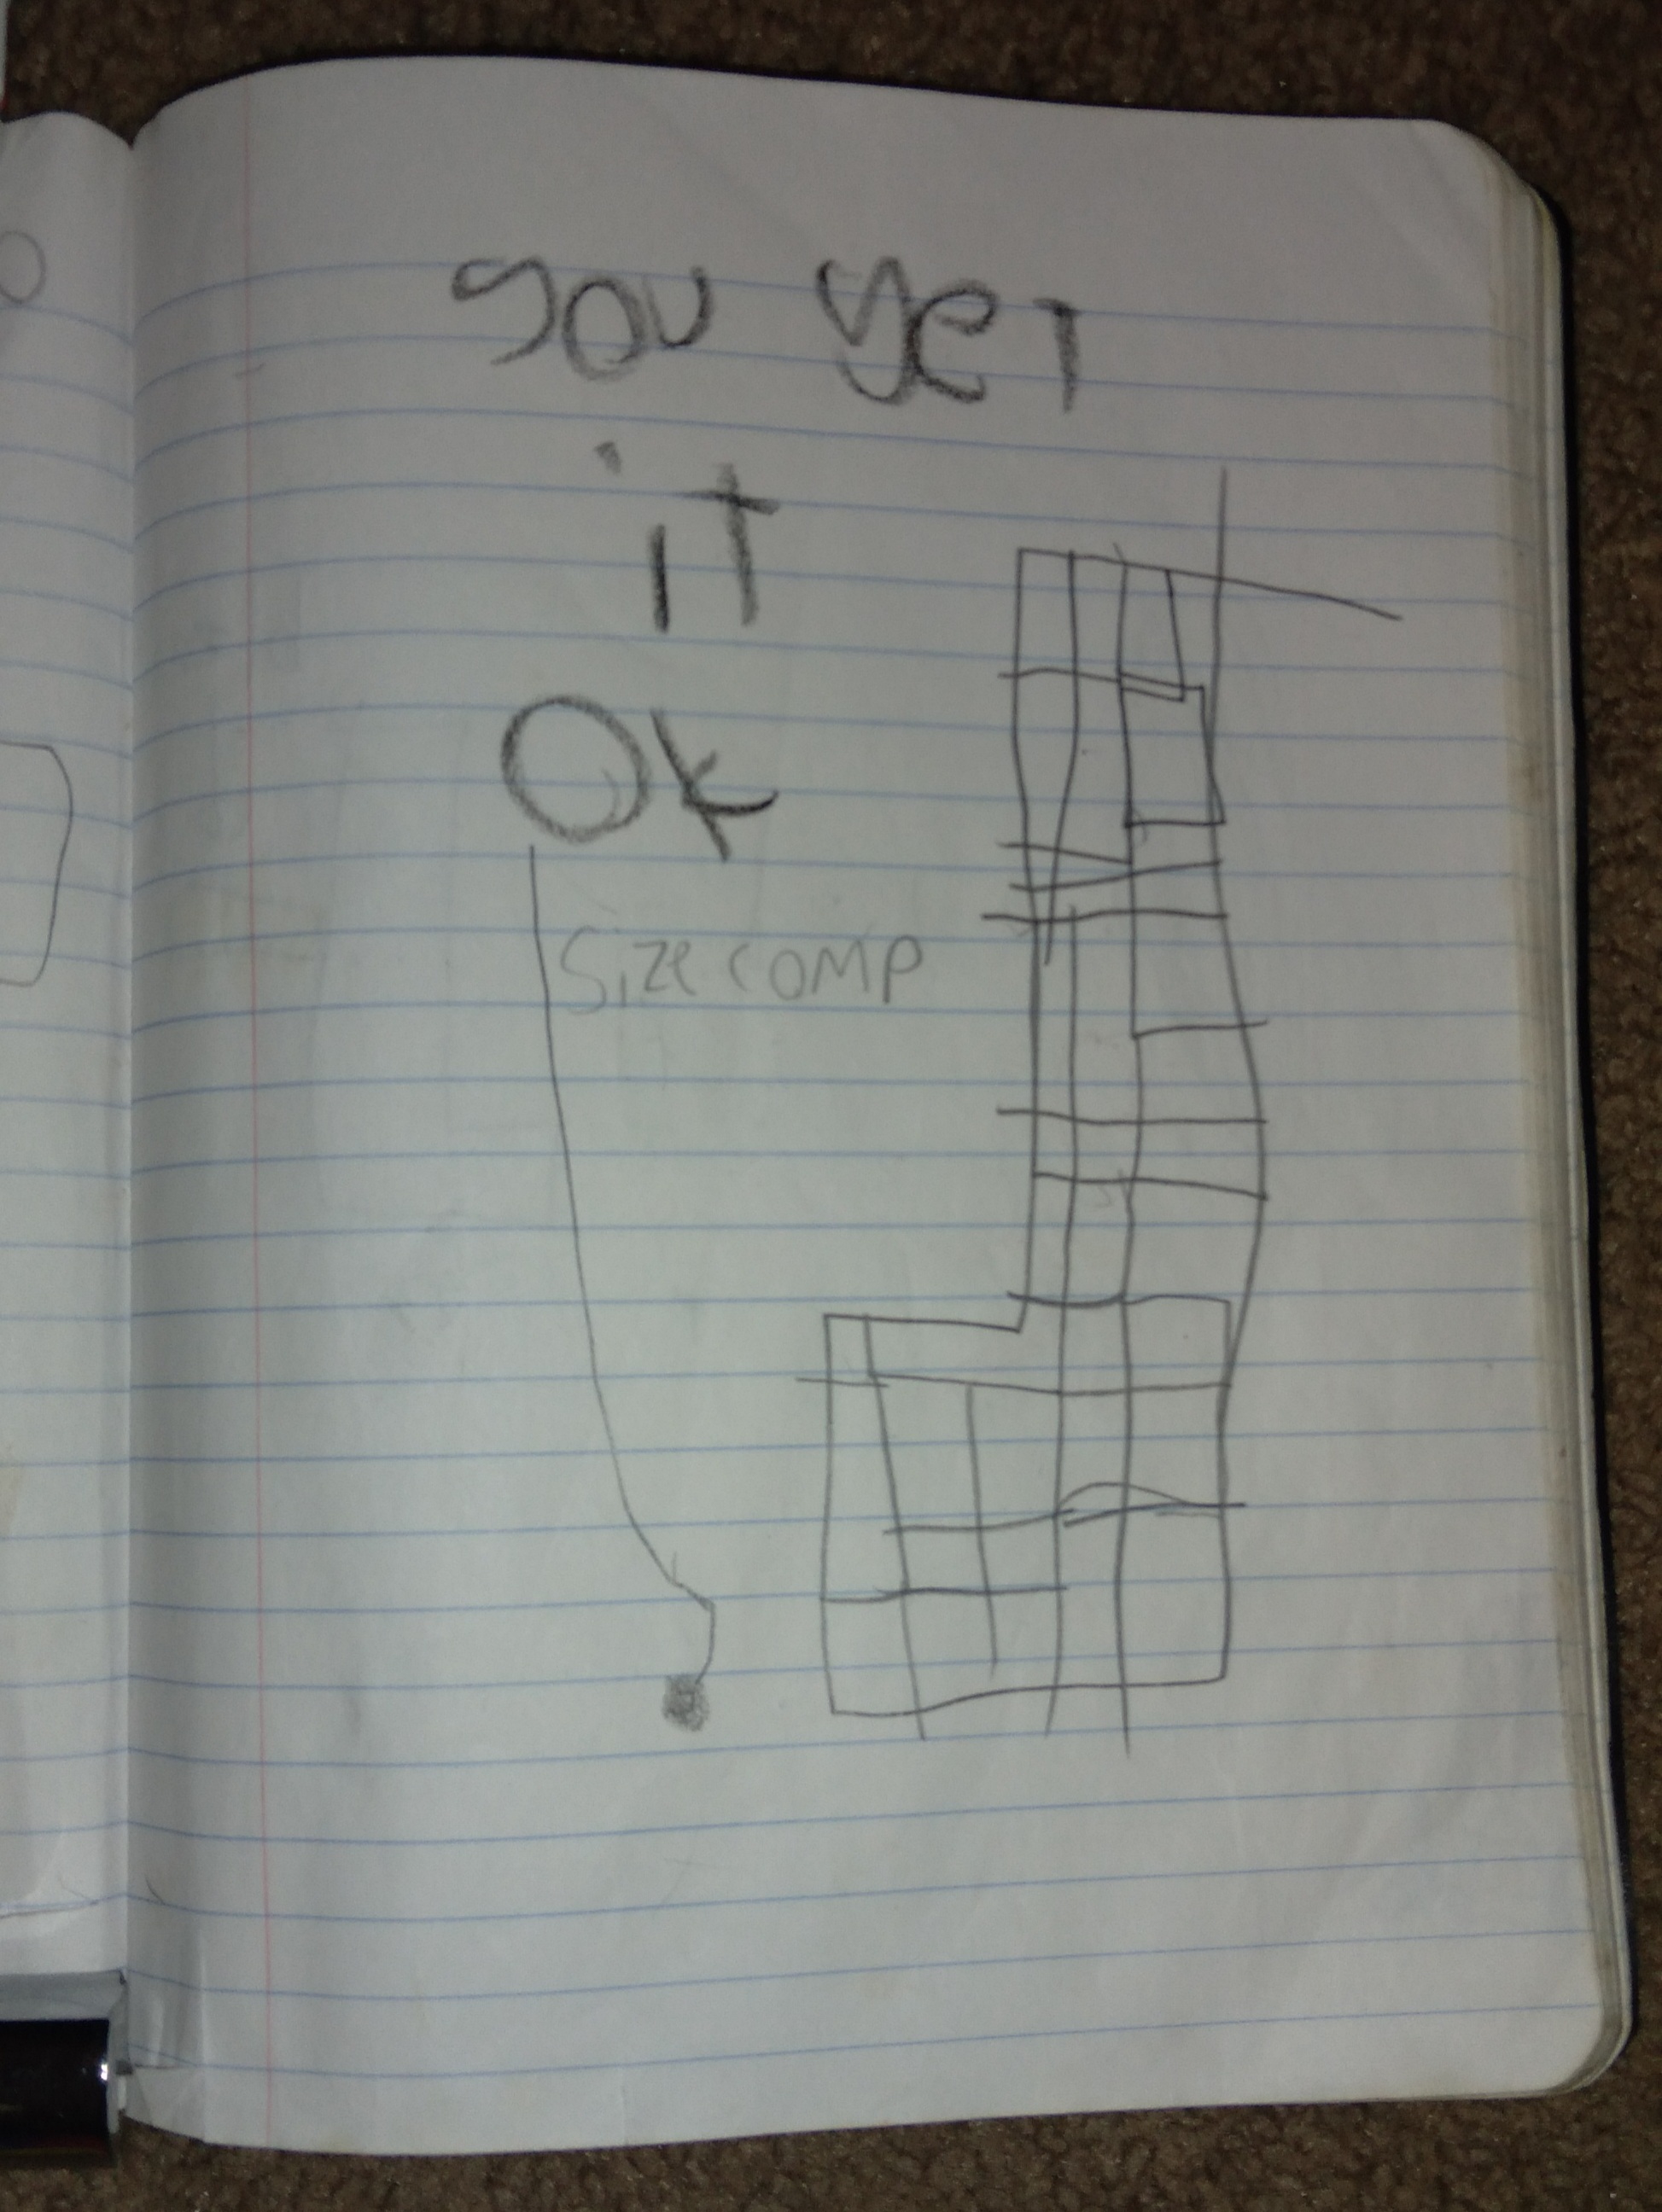 you get
it
Ok
Size comp